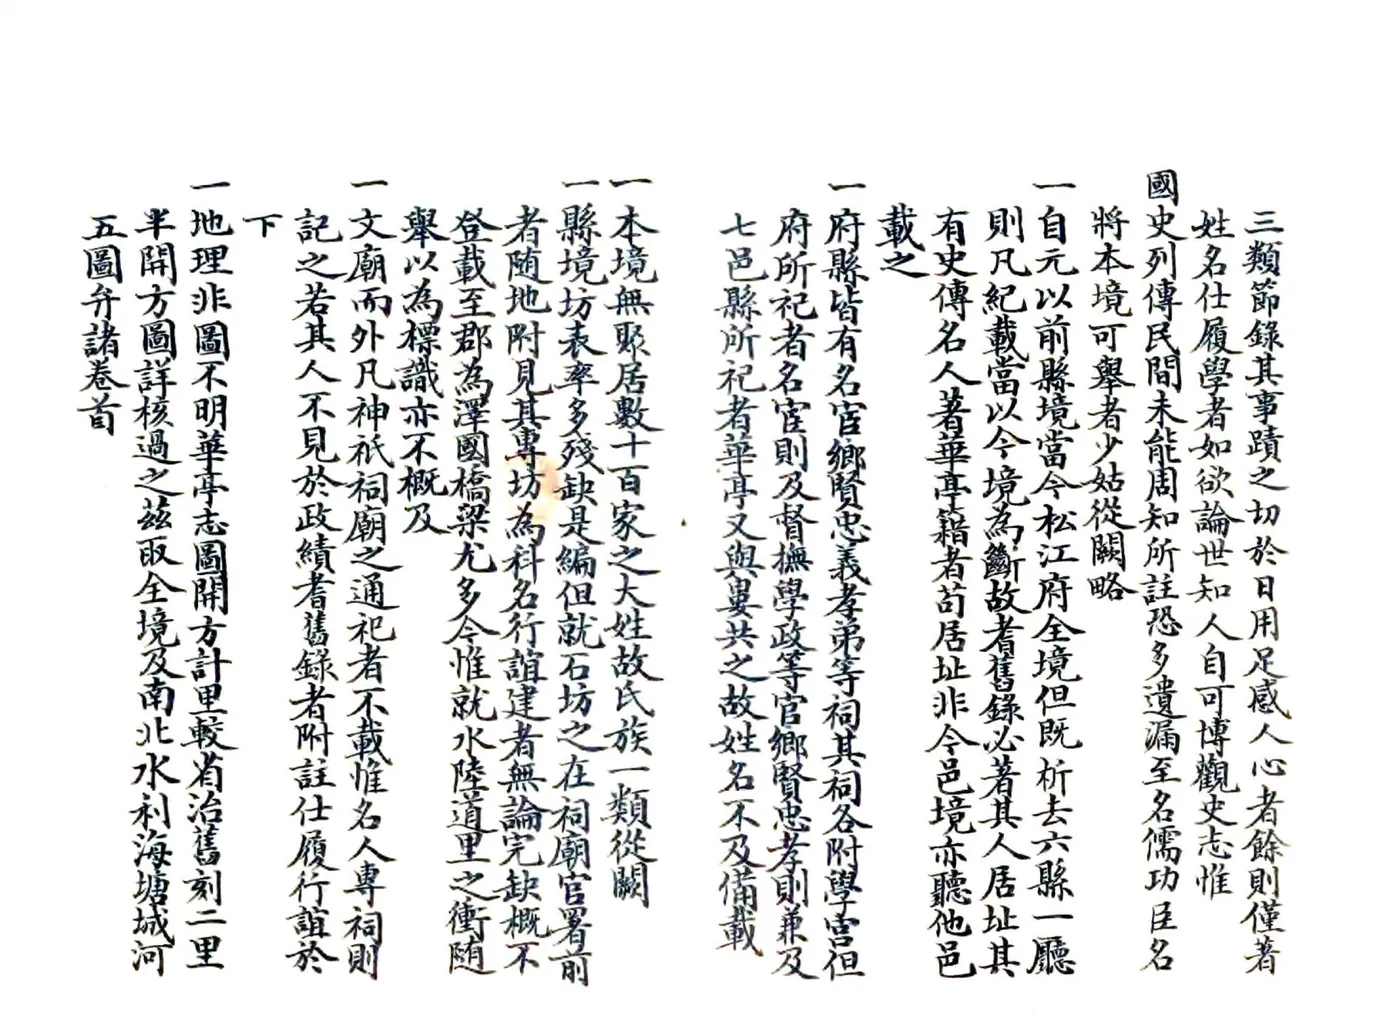 三類節錄其事蹟之切於日用足感人心者餘則僅著
姓名仕履學者如欲論世知人自可博觀史志惟
國史列傳民間未能周知所註恐多遺漏至名儒功臣名
將本境可舉者少姑從闕略
一自元以前縣境當今松江府全境但既析去六縣一廳
則凡紀載當以今境為斷故耆舊錄必著其人居址其
有史傳名人著華亭籍者苟居址非今邑境亦聽他邑
載之
一府縣皆有名宦鄉賢忠義孝弟等祠其祠各附學宮但
府所祀者名宦則及督撫學政等官鄉賢忠孝則兼及
七邑縣所祀者華亭又與婁共之故姓名不及備載
一本境無聚居數十百家之大姓故氏族一類從闕
一縣境坊表率多殘缺是編但就石坊之在祠廟官署前
者隨地附見其專坊為科名行誼建者無論完缺概不
登載至郡為澤國橋梁尤多今惟就水陸道里之衝隨
舉以為標識亦不概及
一文廟而外凡神祇祠廟之通祀者不載惟名人專祠則
記之若其人不見於政績耆舊錄者附註仕履行誼於
下
一地理非圖不明華亭志圖開方計里較省治舊刻二里
半開方圖詳核過之茲取全境及南北水利海塘城河
五圖弁諸卷首